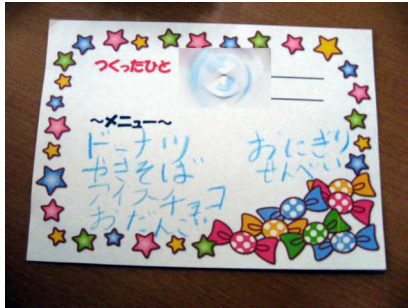 つくったひと
～メニュー～
ドーナツ
やきそば
アイスチョコ
おだんご
おにぎり
せんべい